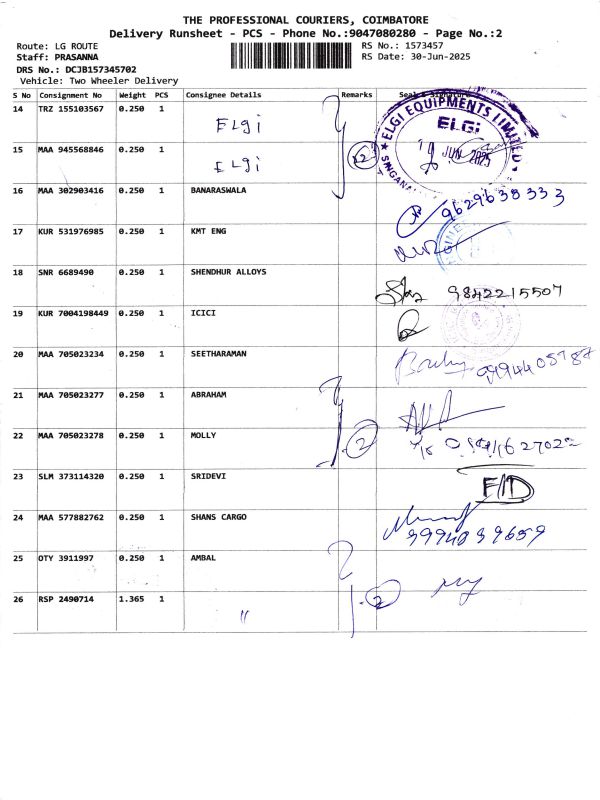 THE PROFESSIONAL COURIERS, COIMBATORE
Delivery Runsheet - PCS - Phone No.:9047080280 - Page No.:2
Route: LG ROUTE RS No.: 1573457
Staff: PRASANNA RS Date: 30-Jun-2025
DRS No.: DCJB157345702
Vehicle: Two Wheeler Delivery
S No Consignment No Weight PCS Consignee Details Remarks Seal & Signature
14 TRZ 155103567 0.250 1 ELgi
ELGI EQUIPMENTS LIMITED
ELGi
JUN 2025
15 MAA 945568846 0.250 1 ELgi x2
16 MAA 302903416 0.250 1 BANARASWALA 9629638333
17 KUR 531976985 0.250 1 KMT ENG
18 SNR 6689490 0.250 1 SHENDHUR ALLOYS 9842215507
19 KUR 7004198449 0.250 1 ICICI
20 MAA 705023234 0.250 1 SEETHARAMAN
21 MAA 705023277 0.250 1 ABRAHAM
22 MAA 705023278 0.250 1 MOLLY 2
23 SLM 373114320 0.250 1 SRIDEVI F/D
24 MAA 577882762 0.250 1 SHANS CARGO 9994039659
25 OTY 3911997 0.250 1 AMBAL
26 RSP 2490714 1.365 1 " 2